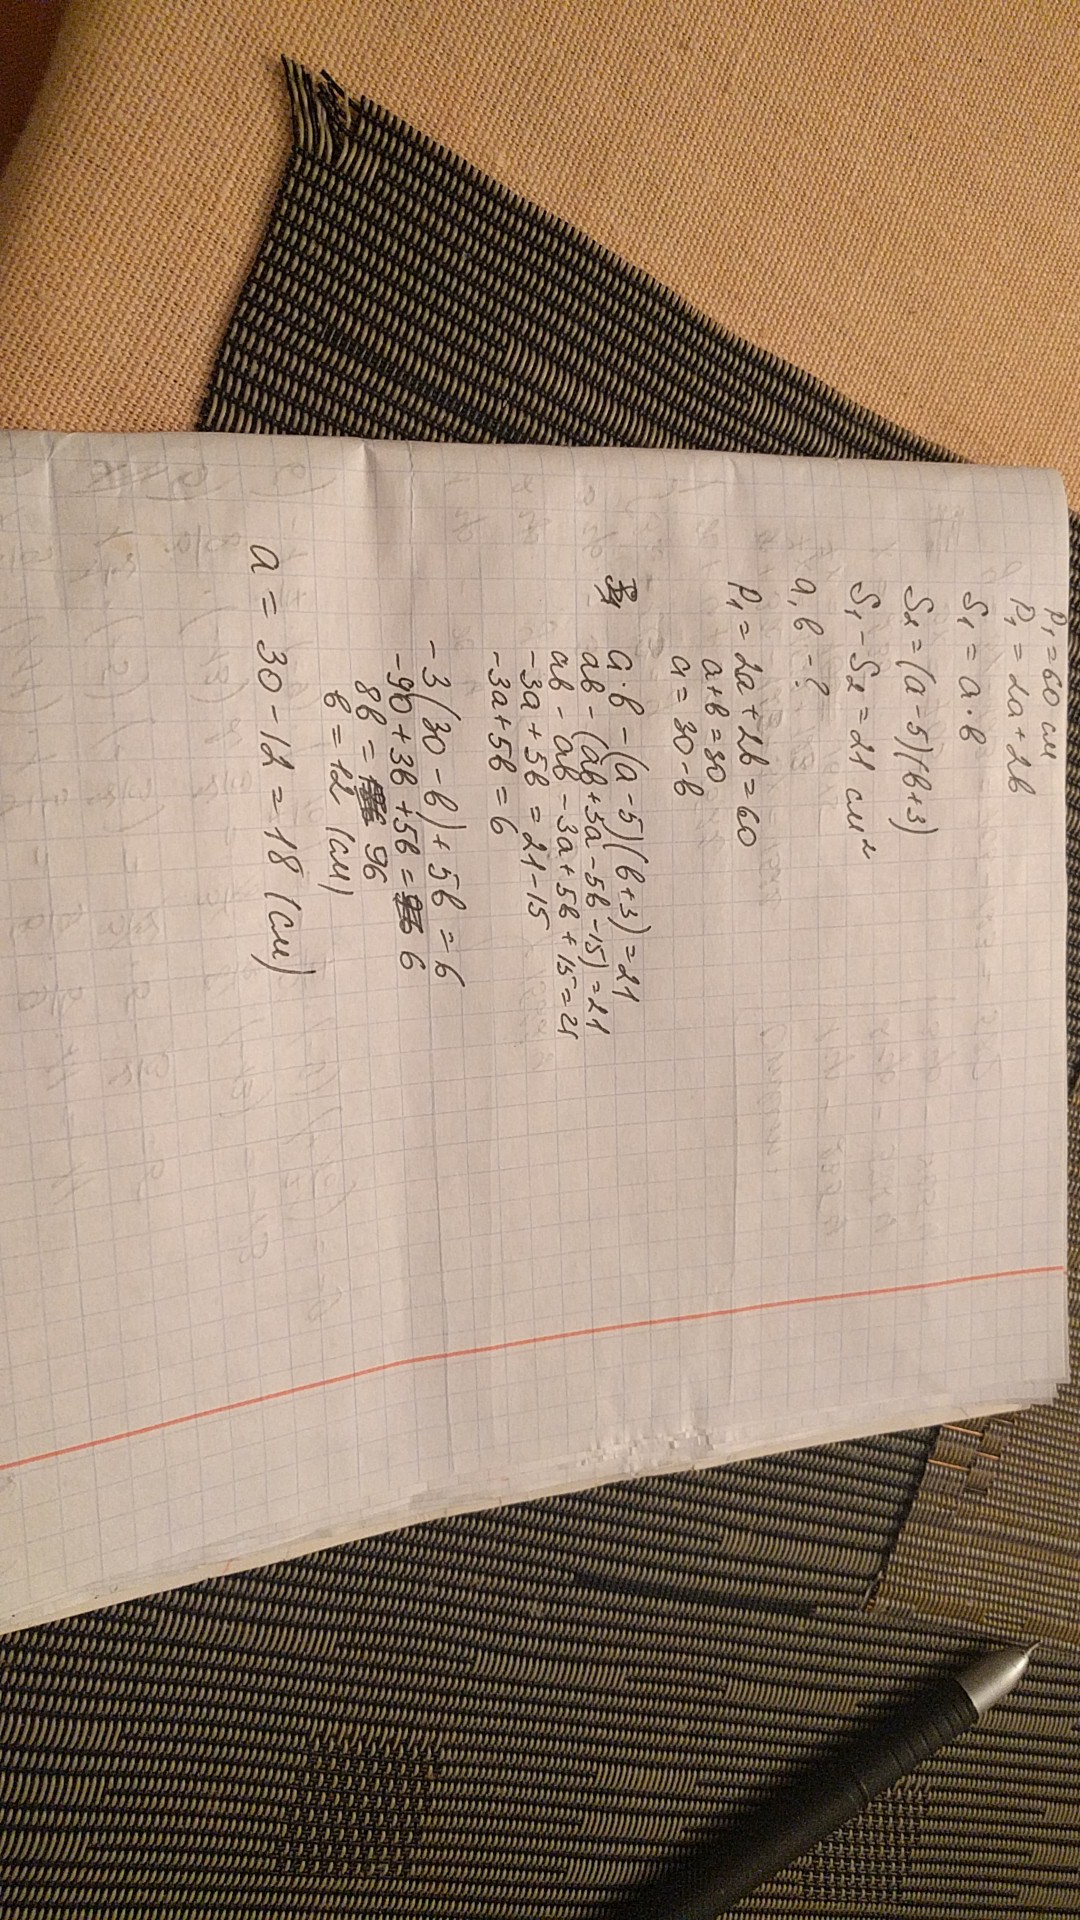 P₁ = 60 см
P₁ = 2a + 2b
S₁ = a · b
S₂ = (a - 5)(b+3)
S₁ - S₂ = 21 см²
a, b - ?
P₁ = 2a + 2b = 60
a+b = 30
a = 30 - b
a · b - (a - 5)(b+3) = 21
ab - (ab + 3a - 5b - 15) = 21
ab - ab - 3a + 5b + 15 = 21
-3a + 5b = 21 - 15
-3a + 5b = 6
-3(30 - b) + 5b = 6
-90 + 3b + 5b = 6
8b = 96
b = 12 (см)
a = 30 - 12 = 18 (см)